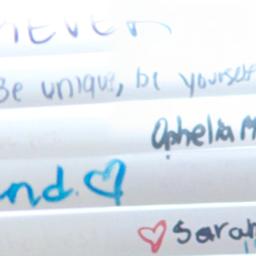 Be unique, be yourself
Ophelia M
nd. ♡
♡ Sarah